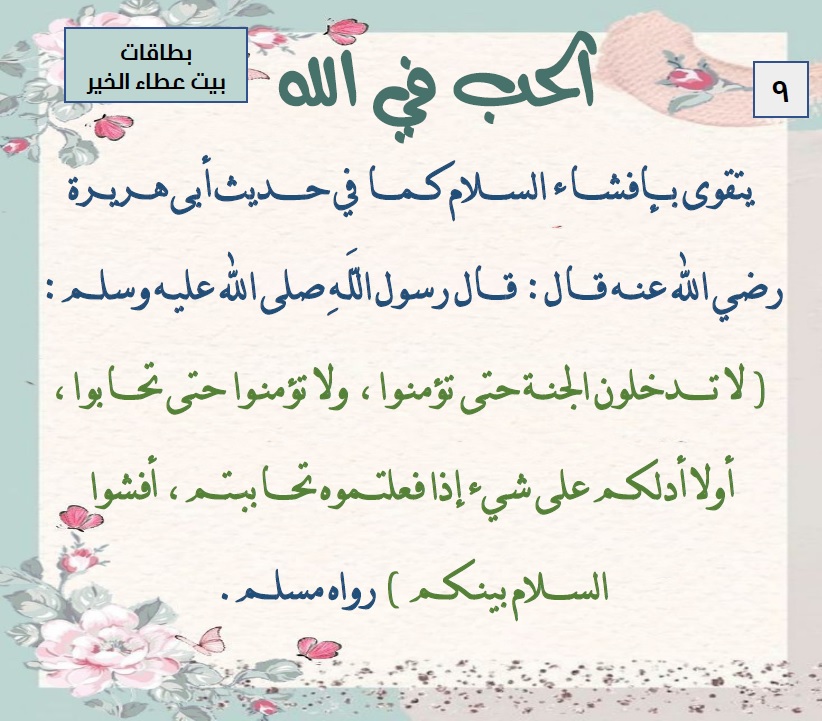 بطاقات
بيت عطاء الخير
الحب في الله
٩
يتقوى بإفشاء السلام كما في حديث أبى هريرة
رضي الله عنه قال : قال رسول اللَّهِ صلى الله عليه وسلم :
( لا تدخلون الجنة حتى تؤمنوا ، ولا تؤمنوا حتى تحابوا ،
أولا أدلكم على شيء إذا فعلتموه تحاببتم ، أفشوا
السلام بينكم ) رواه مسلم .